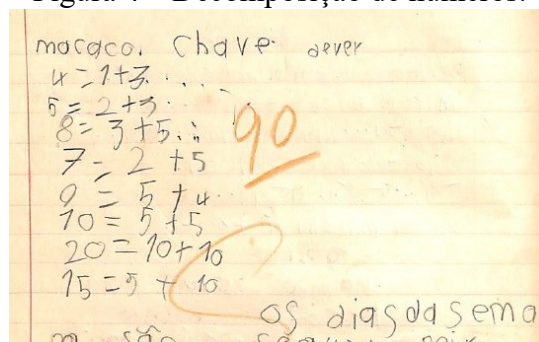 macaco. Chave dever
4 = 1+3
5 = 2+3
8 = 3+5
7 = 2+5
9 = 5+4
10 = 5+5
20 = 10+10
15 = 5+10
90
os diasdasema